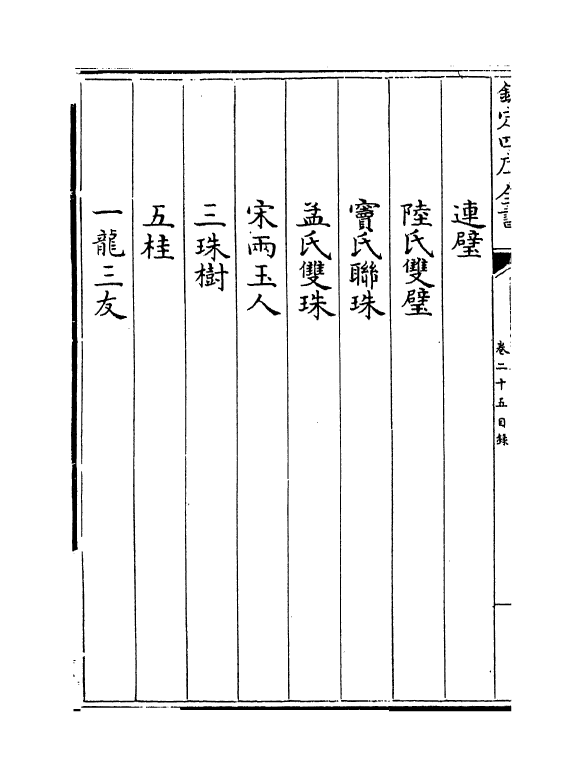 欽定四庫全書
卷二十五目錄
連璧
陸氏雙璧
竇氏聯珠
孟氏雙珠
宋兩玉人
三珠樹
五桂
一龍三友